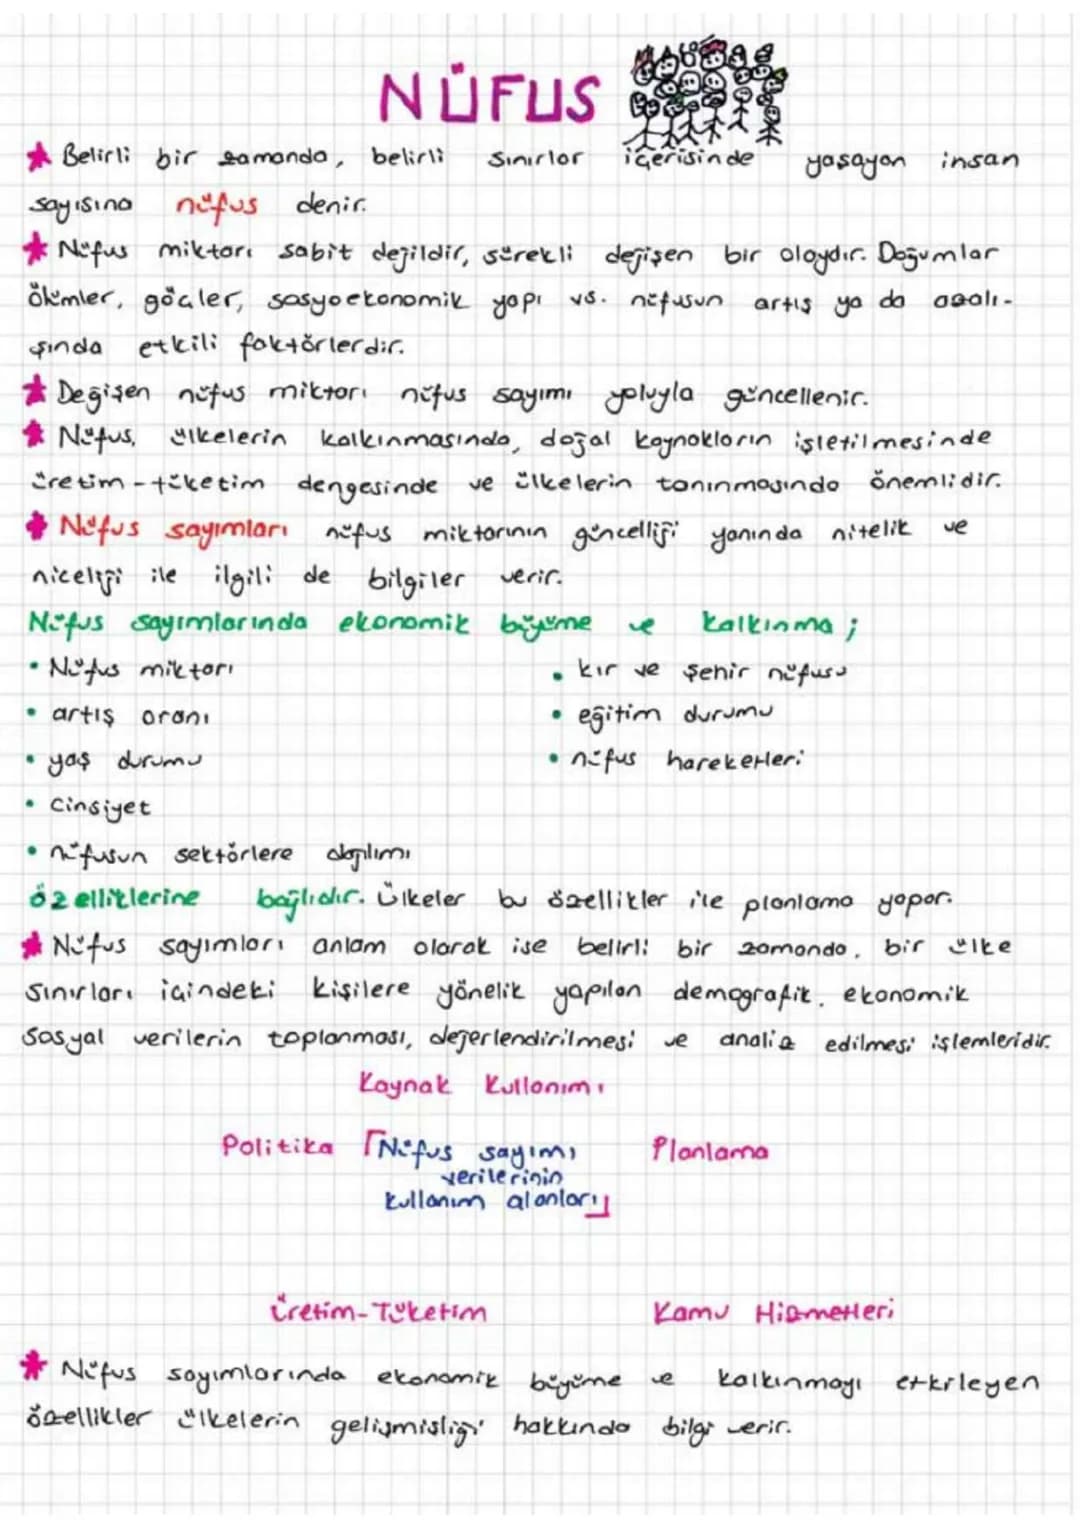 NÜFUS
★ Belirli bir zamanda, belirli sınırlar içerisinde yaşayan insan
sayısına nüfus denir.
★ Nüfus miktarı sabit değildir, sürekli değişen bir olaydır. Doğumlar
ölümler, göçler, sosyoekonomik yapı vs. nüfusun artış ya da azalı-
şında etkili faktörlerdir.
★ Değişen nüfus miktarı nüfus sayımı yoluyla güncellenir.
★ Nüfus, ülkelerin kalkınmasında, doğal kaynakların işletilmesinde
üretim-tüketim dengesinde ve ülkelerin tanınmasında önemlidir.
★ Nüfus sayımları nüfus miktarının güncelliği yanında nitelik ve
niceliği ile ilgili de bilgiler verir.
Nüfus sayımlarında ekonomik büyüme ve kalkınma;
• Nüfus miktarı
• artış oranı
• yaş durumu
• cinsiyet
• nüfusun sektörlere dağılımı
• kır ve şehir nüfusu
• eğitim durumu
• nüfus hareketleri
özelliklerine bağlıdır. Ülkeler bu özellikler ile planlama yapar.
★ Nüfus sayımları anlam olarak ise belirli bir zamanda, bir ülke
sınırları içindeki kişilere yönelik yapılan demografik, ekonomik
sosyal verilerin toplanması, değerlendirilmesi ve analiz edilmesi işlemleridir.
Kaynak Kullanımı
Politika 「Nüfus sayımı Planlama
verilerinin
kullanım alanları」
Üretim-Tüketim Kamu Hizmetleri
★ Nüfus sayımlarında ekonomik büyüme ve kalkınmayı etkileyen
özellikler ülkelerin gelişmişliği hakkında bilgi verir.